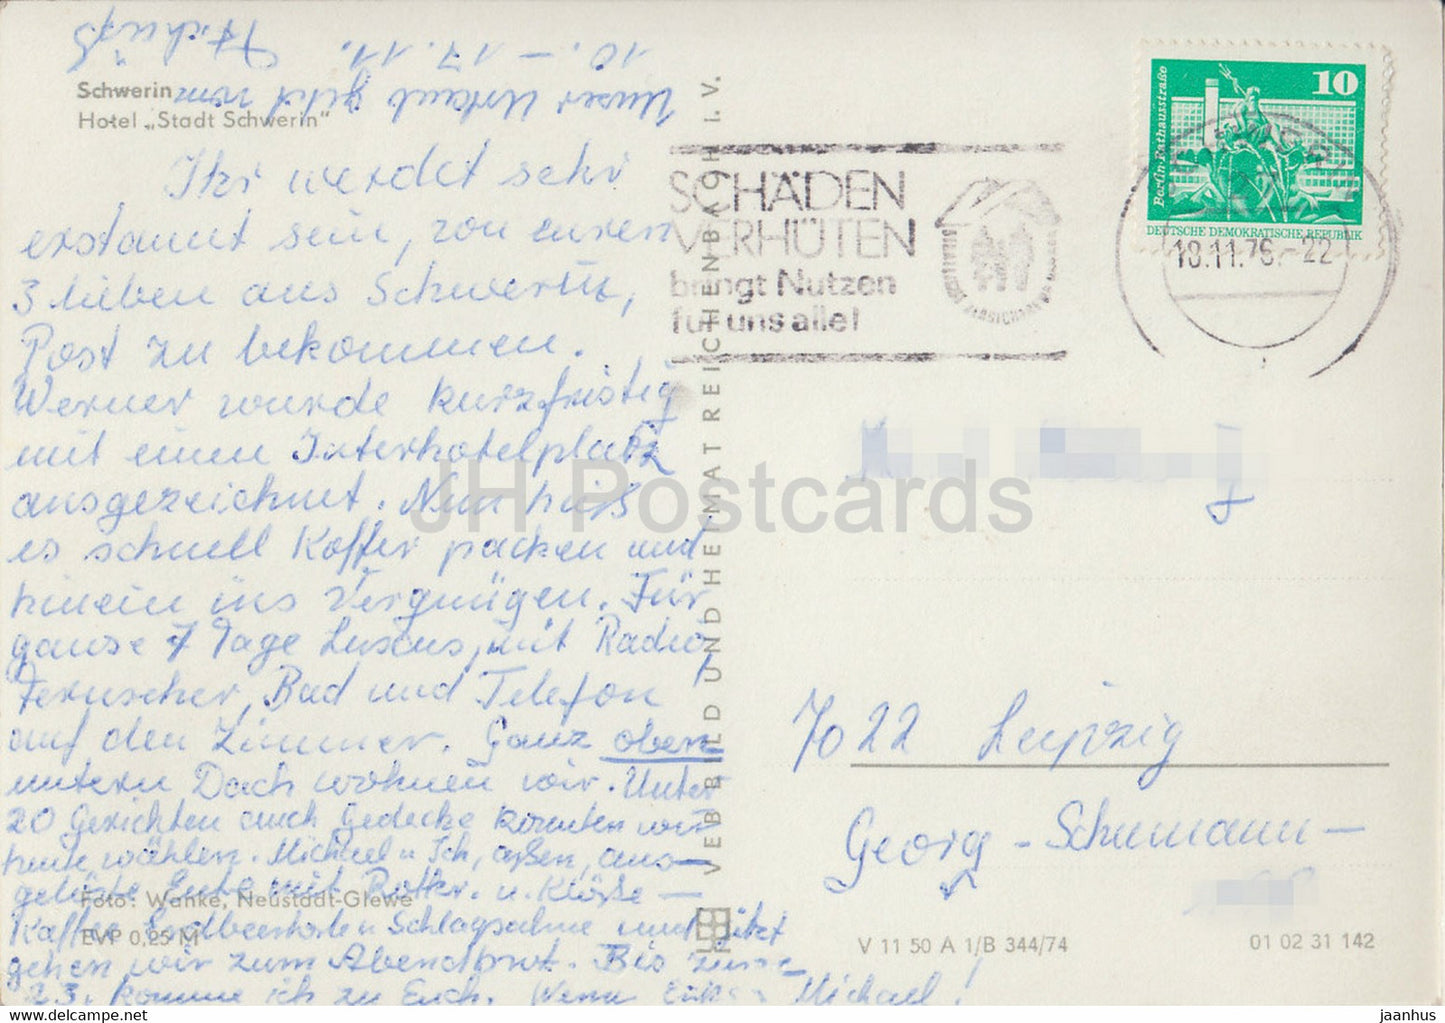 10. – 17. 11.
Unser Urlaub geht vom
Schwerin
Hotel „Stadt Schwerin"
Ihr werdet sehr
erstaunt sein, von euren
3 lieben aus Schwerin,
Post zu bekommen.
Werner wurde kurzfristig
mit einen Interhotelplatz
ausgezeichnet. Nun hieß
es schnell Koffer packen und
hinein ins Vergnügen. Für
ganze 7 Tage Luxus, mit Radio,
Fernseher, Bad und Telefon
auf den Zimmer. Ganz oben
unterm Dach wohnen wir. Unter
20 Gerichten auch Gedecke konnten wir
heute wählen. Michael u Ich, aßen, aus-
gelöste Ente mit Rotkr. u. Klöße –
Kaffee Erdbeertorte u Schlagsahne und jetzt
gehen wir zum Abendbrot. Bis zum
23. komme ich zu Euch. Michael!
Foto: Wanke, Neustadt-Glewe
EVP 0,25 M
VEB BILD UND HEIMAT REICHENBACH I. V.
SCHÄDEN
VERHÜTEN
bringt Nutzen
für uns alle!
10
Berlin, Rathausstraße
DEUTSCHE DEMOKRATISCHE REPUBLIK
18.11.76.-22
7022 Leipzig
Georg-Schumann-
V 11 50 A 1/B 344/74
01 02 31 142
JH Postcards
jaanhus